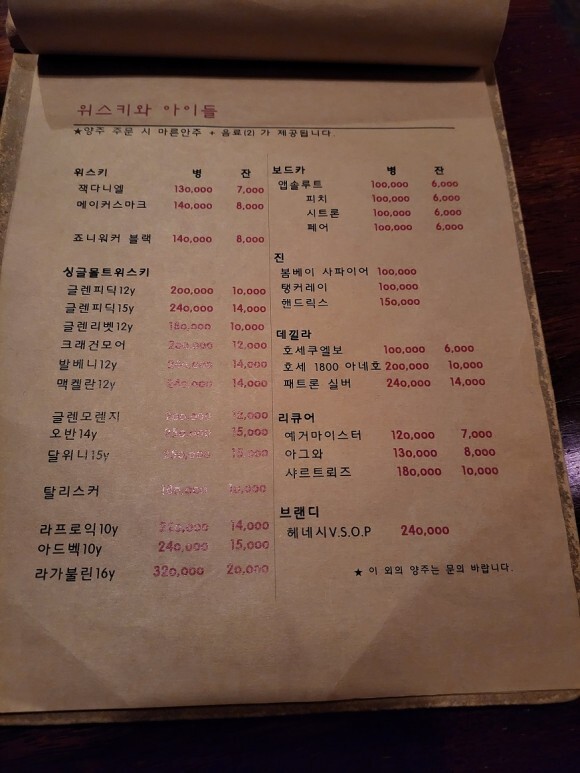 위스키와 아이들
★양주 주문 시 마른안주 + 음료(2) 가 제공됩니다.
위스키 병 잔
잭다니엘 130,000 7,000
메이커스마크 140,000 8,000
죠니워커 블랙 140,000 8,000
싱글몰트위스키
글렌피딕12y 200,000 10,000
글렌피딕15y 240,000 14,000
글렌리벳12y 180,000 10,000
크래건모어 12,000
발베니12y 14,000
맥켈란12y 240,000 14,000
글렌모렌지 12,000
오반14y 15,000
달위니15y 15,000
탈리스커
라프로익10y 14,000
아드벡10y 240,000 15,000
라가불린16y 320,000 20,000
보드카 병 잔
앱솔루트 100,000 6,000
피치 100,000 6,000
시트론 100,000 6,000
페어 100,000 6,000
진
봄베이 사파이어 100,000
탱커레이 100,000
핸드릭스 150,000
데낄라
호세쿠엘보 100,000 6,000
호세 1800 아네호 200,000 10,000
패트론 실버 240,000 14,000
리큐어
예거마이스터 120,000 7,000
아그와 130,000 8,000
샤르트뢰즈 180,000 10,000
브랜디
헤네시V.S.O.P 240,000
★ 이 외의 양주는 문의 바랍니다.